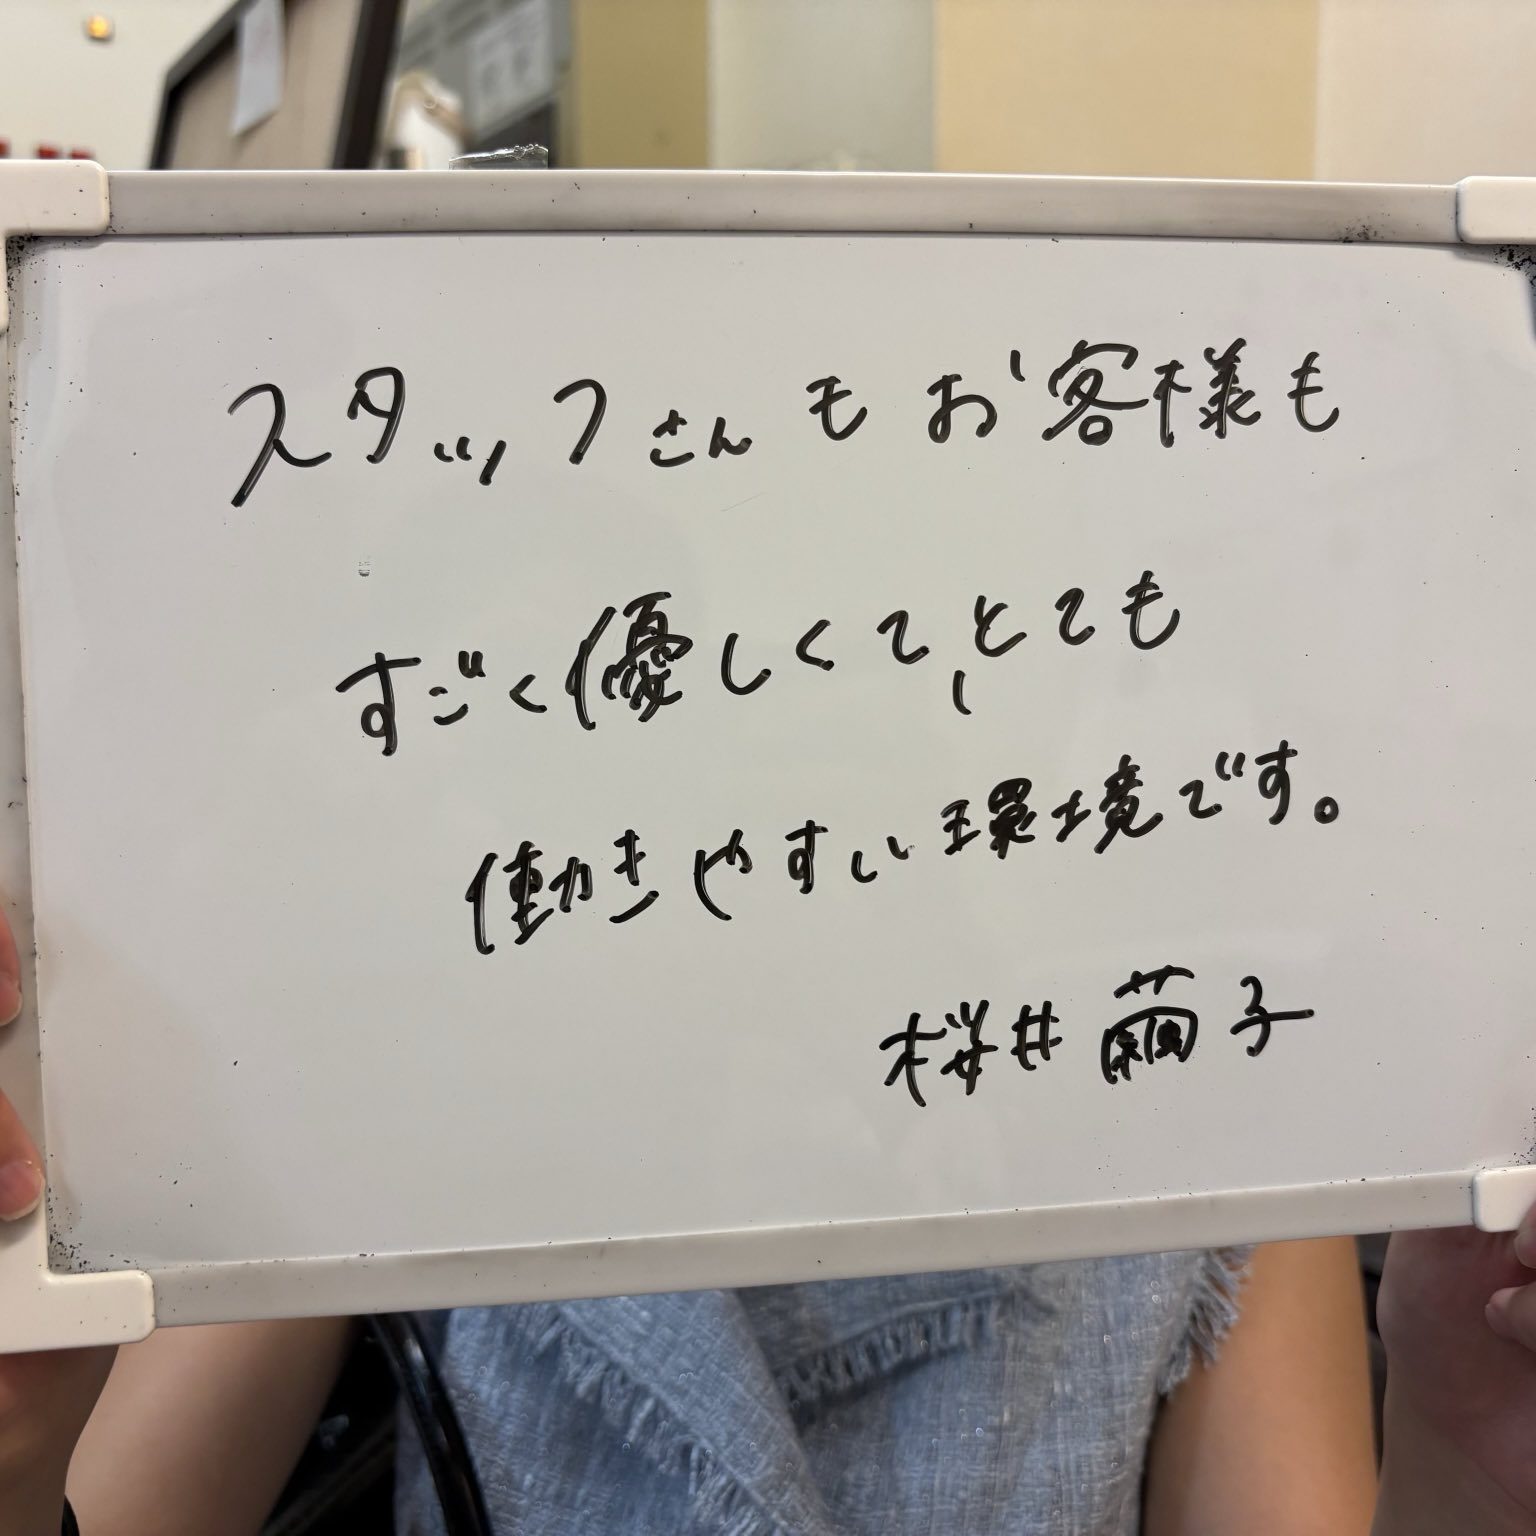 スタッフさんもお客様も
すごく優しくて、とても
働きやすい環境です。
桜井繭子